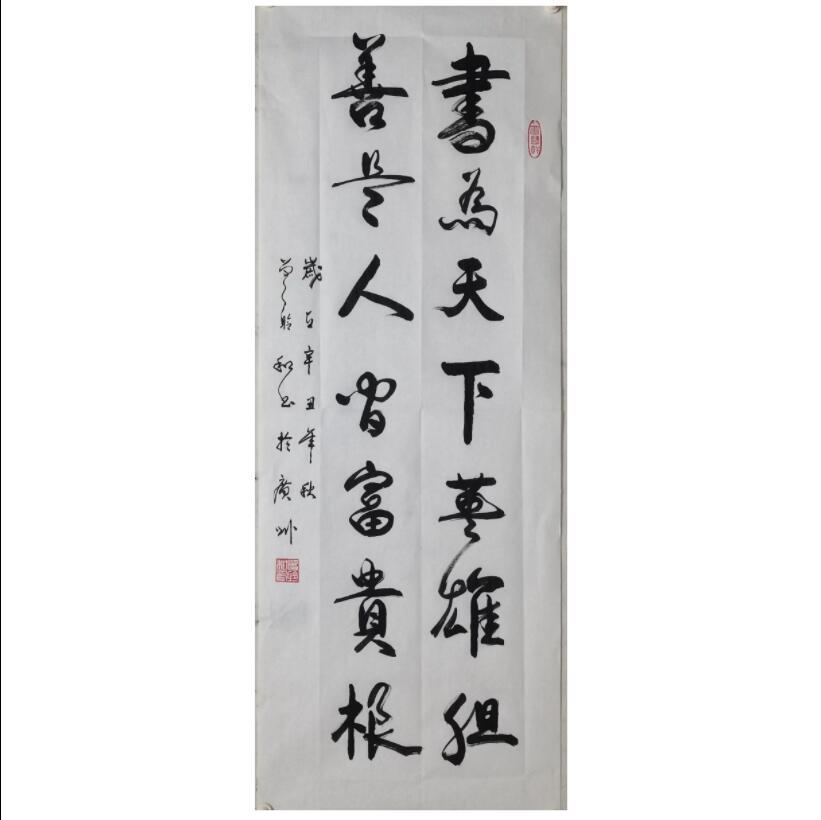 書為天下英雄胆
善是人間富貴根
歲在辛丑年秋
書於廣州